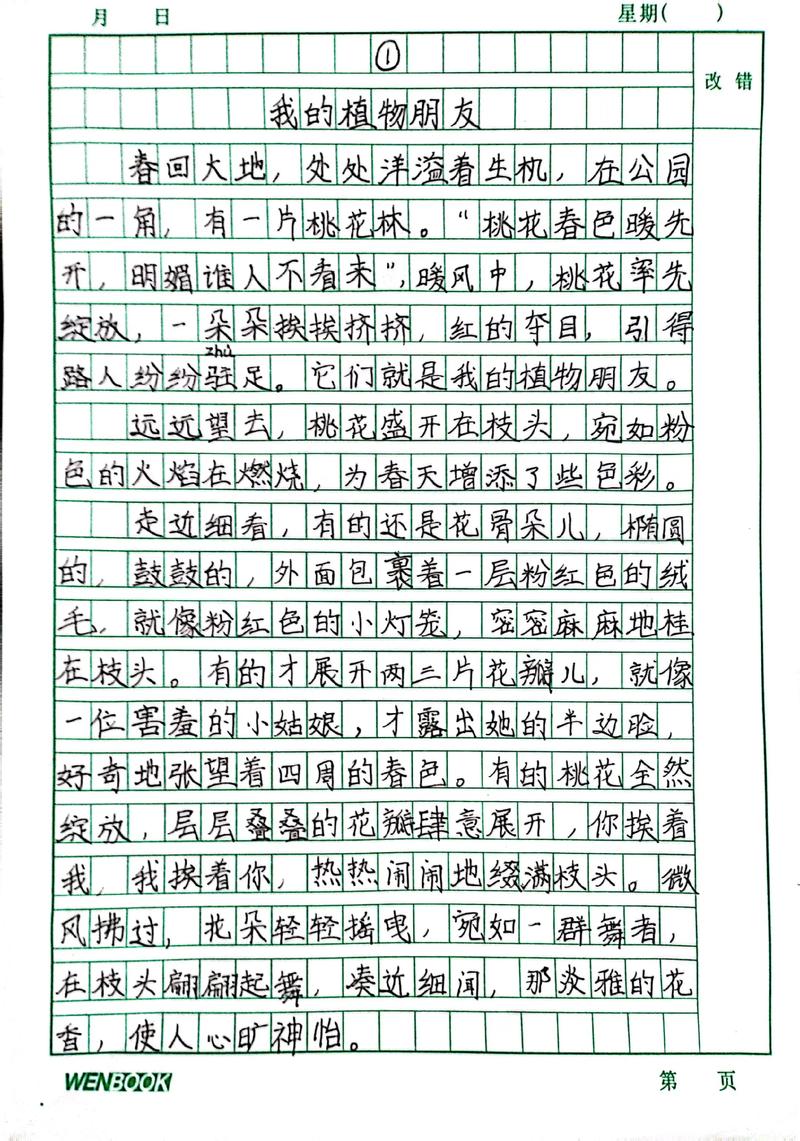 月 日 星期( )
①
改错
我的植物朋友
春回大地，处处洋溢着生机，在公园
的一角，有一片桃花林。“桃花春色暖先
开，明媚谁人不看来”，暖风中，桃花率先
绽放，一朵朵挨挨挤挤，红的夺目，引得
zhù
路人纷纷驻足。它们就是我的植物朋友。
远远望去，桃花盛开在枝头，宛如粉
色的火焰在燃烧，为春天增添了些色彩。
走近细看，有的还是花骨朵儿，椭圆
的，鼓鼓的，外面包裹着一层粉红色的绒
毛，就像粉红色的小灯笼，密密麻麻地桂
在枝头。有的才展开两三片花瓣儿，就像
一位害羞的小姑娘，才露出她的半边脸，
好奇地张望着四周的春色。有的桃花全然
绽放，层层叠叠的花瓣肆意展开，你挨着
我，我挨着你，热热闹闹地缀满枝头。微
风拂过，花朵轻轻摇曳，宛如一群舞者，
在枝头翩翩起舞，凑近细闻，那淡雅的花
香，使人心旷神怡。
WENBOOK 第 页